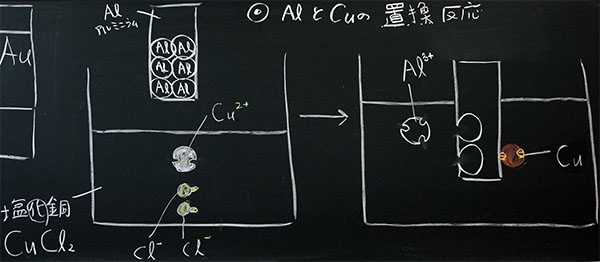 Al
アルミニウム
◎ AlとCuの 置換反応
Au
Al Al
Al Al
Al Al
Cu²⁺
Al³⁺
Cu
塩化銅
CuCl₂
Cl⁻
Cl⁻